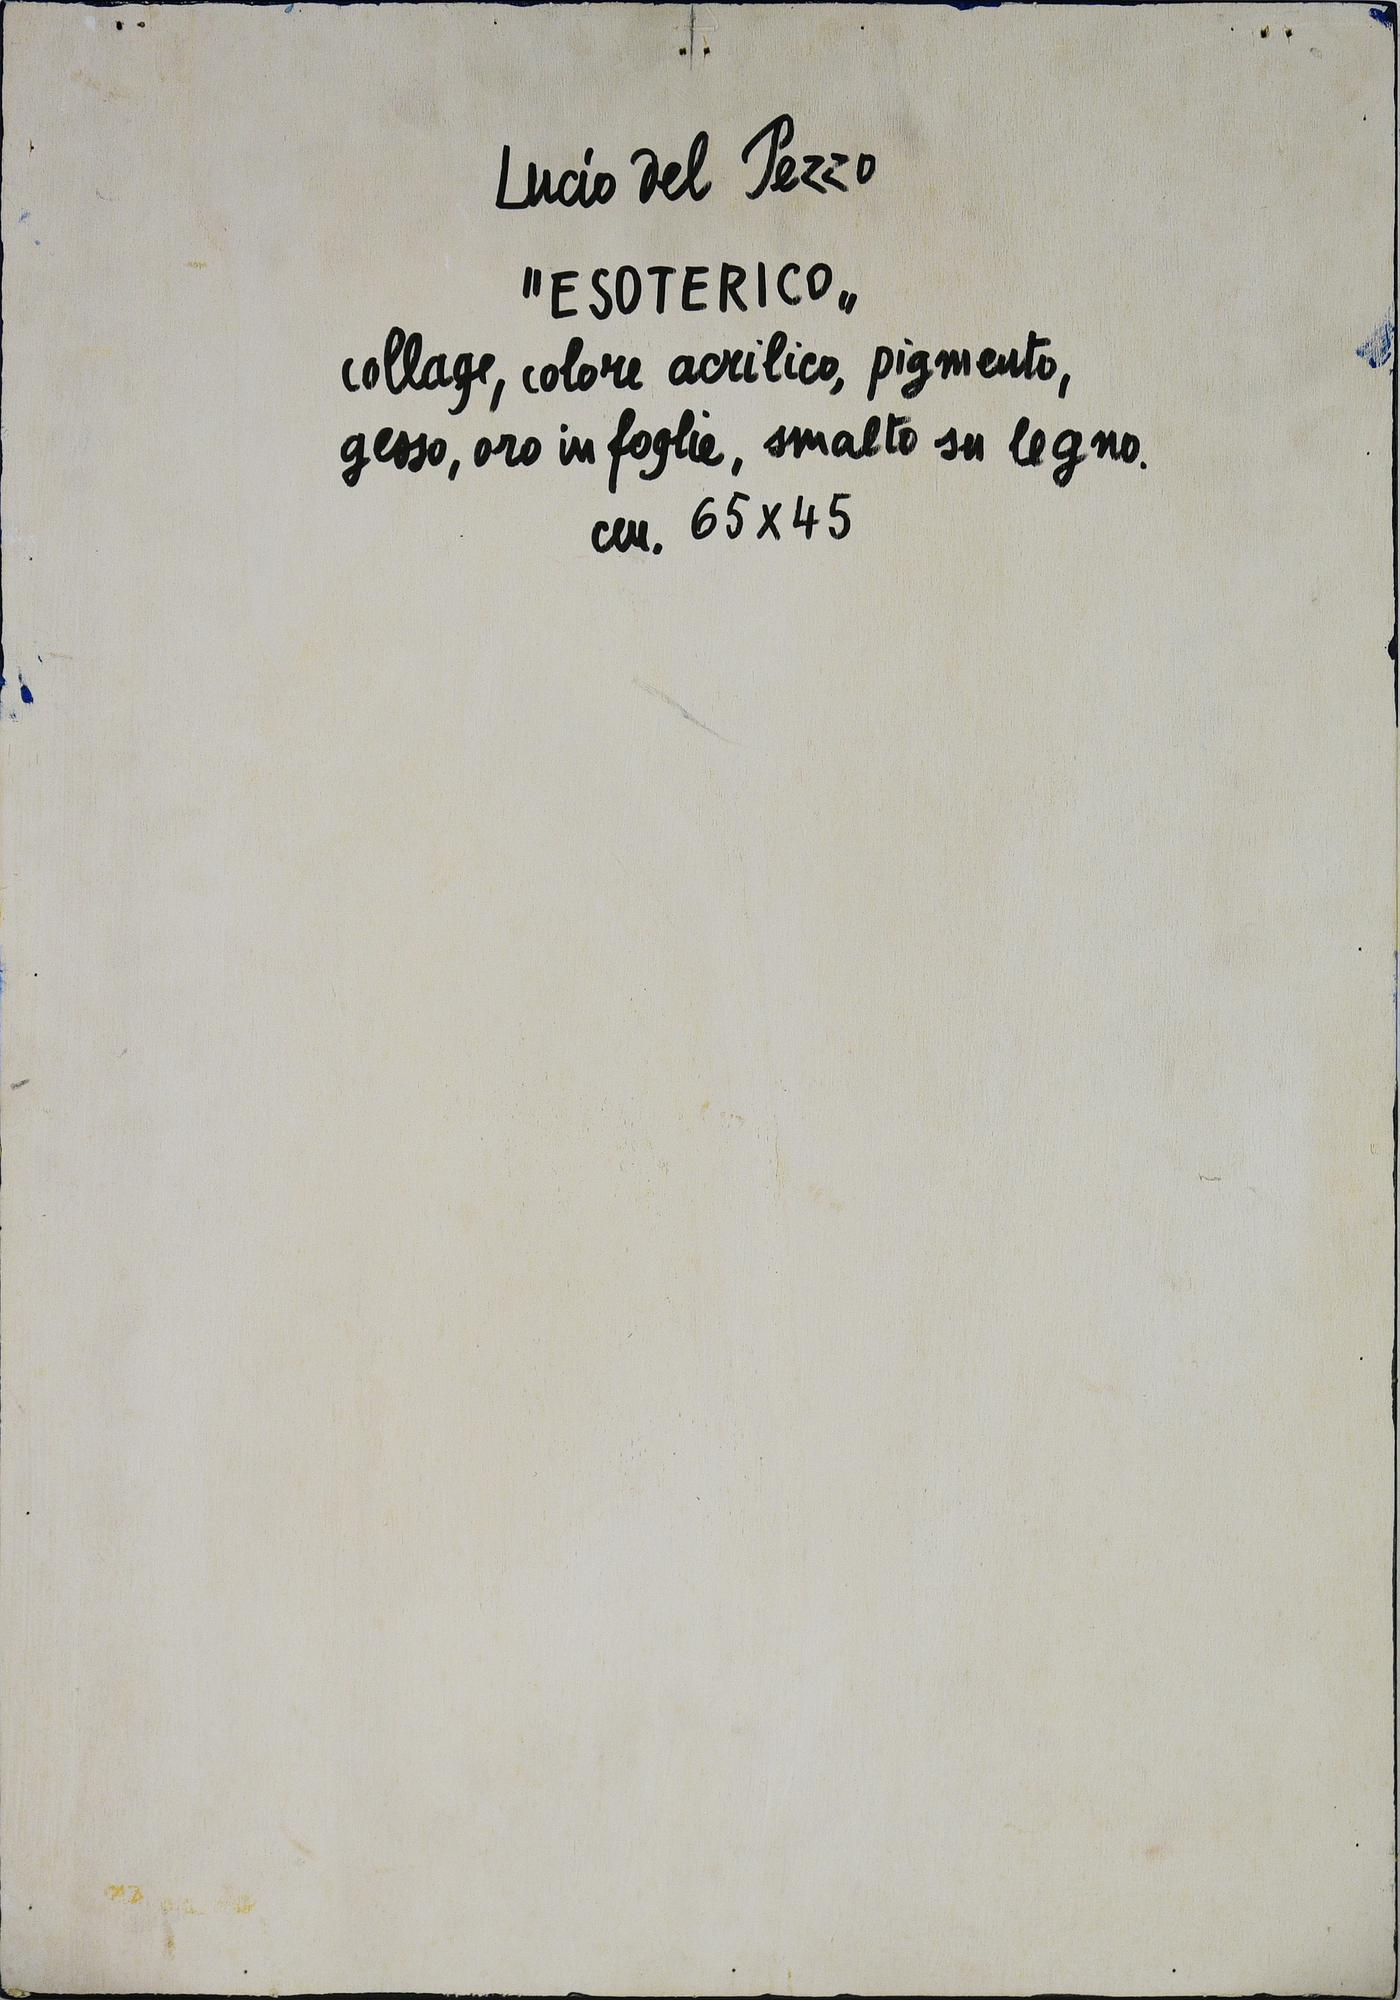 Lucio del Pezzo
"ESOTERICO„
collage, colore acrilico, pigmento,
gesso, oro in foglie, smalto su legno.
cm. 65x45